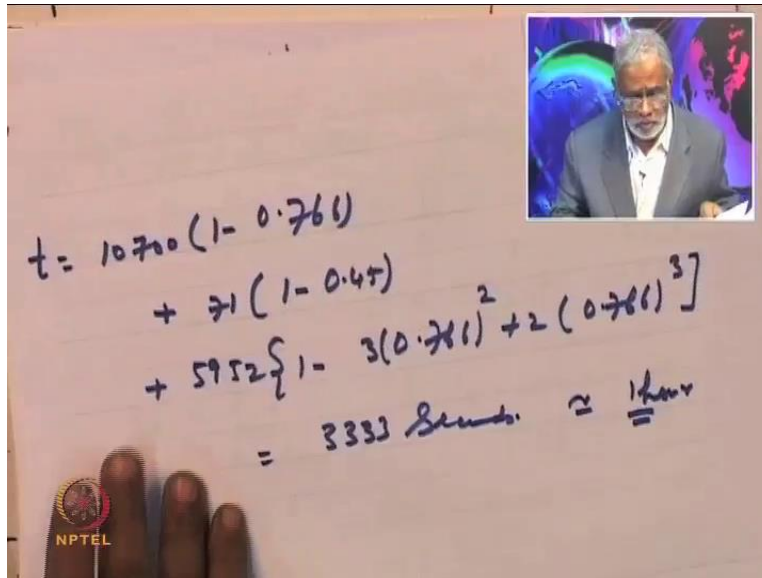 t = 10700 (1 - 0.766)
+ 71 (1 - 0.45)
+ 5952 { 1 - 3(0.766)² + 2 (0.766)³ ]
= 3333 Seconds. ≃ 1 hour
NPTEL